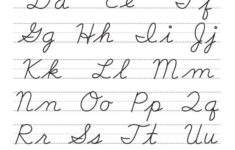 Dd Ee Ff
Gg Hh Ii Jj
Kk Ll Mm
Nn Oo Pp Qq
Rr Ss Tt Uu